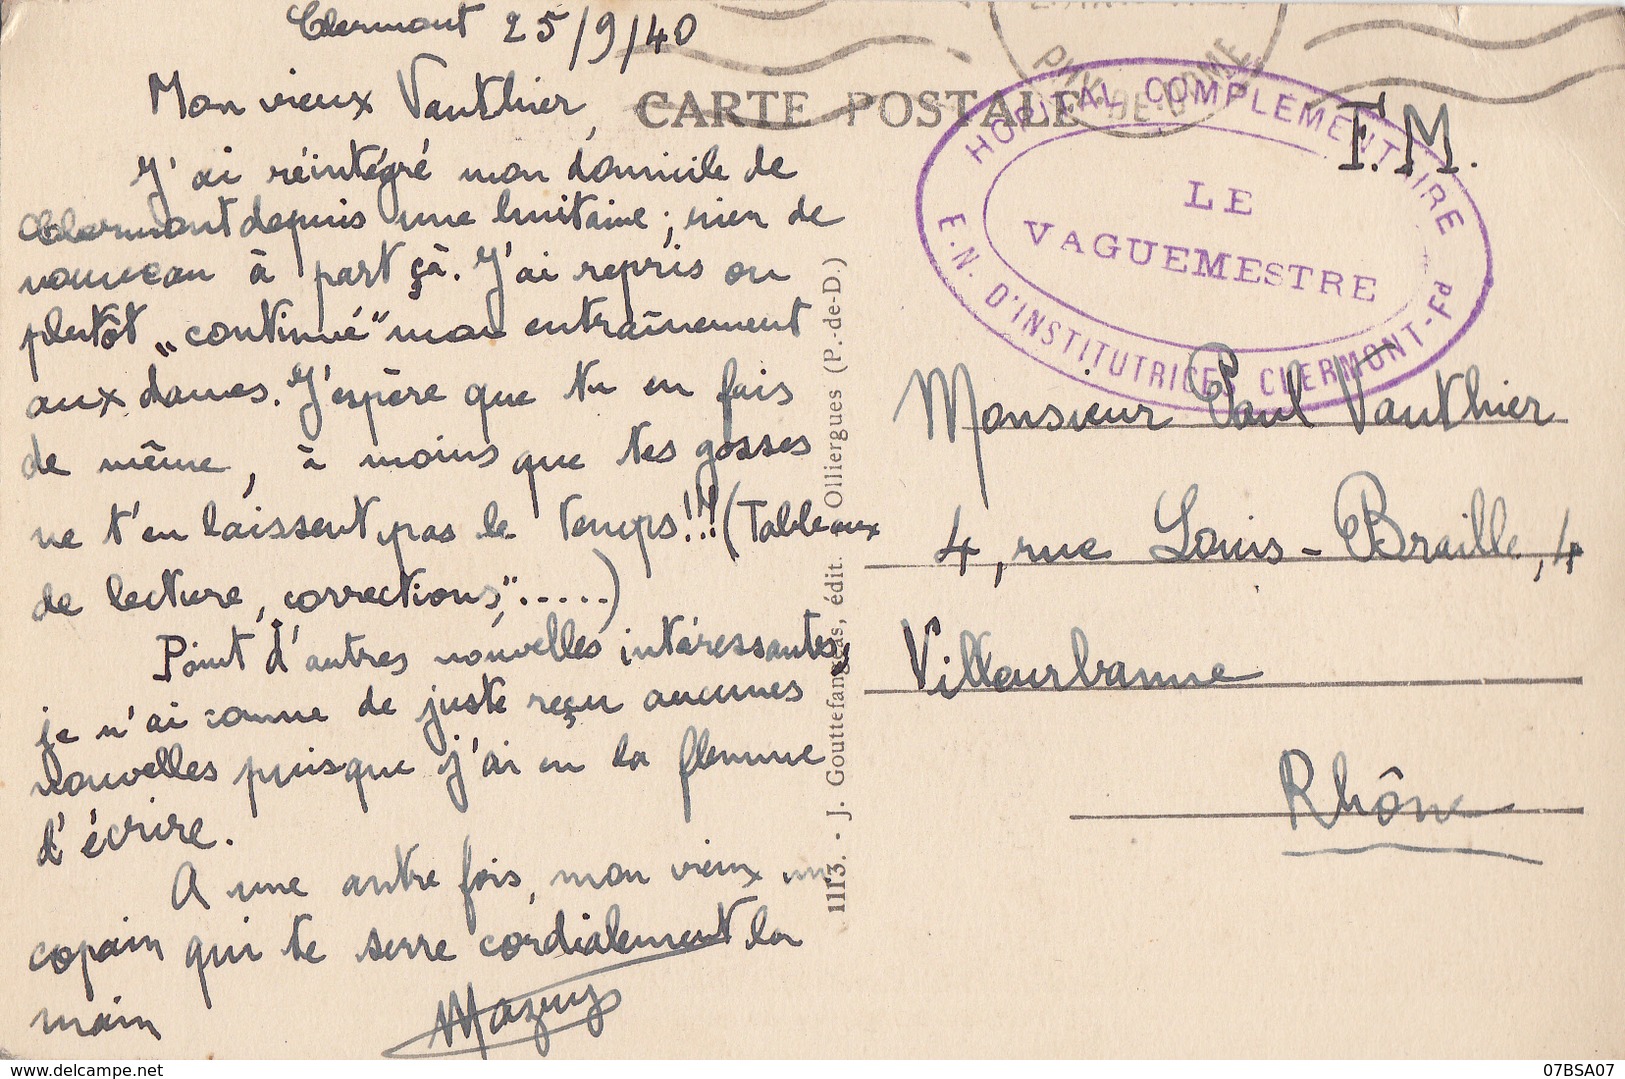 Clermont 25/9/40
Mon vieux Vauthier,
J'ai réintégré mon domicile de
Clermont depuis une huitaine; rien de
nouveau à part çà. J'ai repris ou
plutôt "continué" mon entraînement
aux dames. J'espère que tu en fais
de même, à moins que tes gosses
ne t'en laissent pas le temps!!! (Tableaux
de lecture, corrections,".....)
Point d'autres nouvelles intéressantes,
je n'ai comme de juste reçu aucunes
nouvelles puisque j'ai eu la flemme
d'écrire.
A une autre fois, mon vieux un
copain qui te serre cordialement la
main
Mazuy
CARTE POSTALE
PUY-DE-DOME
F.M.
HOPITAL COMPLEMENTAIRE
LE
VAGUEMESTRE
E.N. D'INSTITUTRICES CLERMONT-Fd
Monsieur Paul Vauthier
4, rue Louis-Braille, 4
Villeurbanne
Rhône
1113. - J. Gouttefangeas, édit. Olliergues (P.-de-D.)
www.delcampe.net
07BSA07